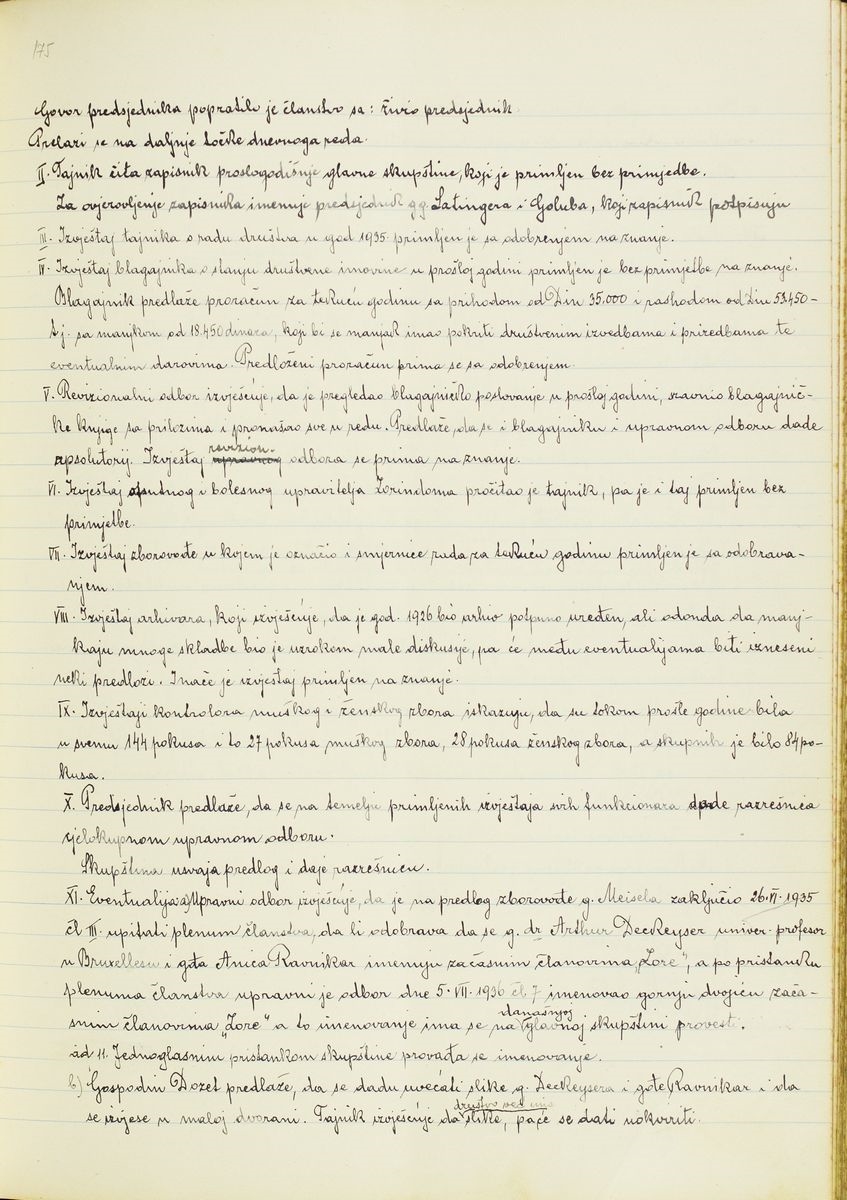 175
Govor predsjednika popratilo je članstvo sa: živio predsjednik.
Prelazi se na daljnje točke dnevnoga reda.
II. Tajnik čita zapisnik prošlogodišnje glavne skupštine, koji je primljen bez primjedbe.
Za ovjerovljenje zapisnika imenuje predsjednik g.g. Satingera i Goluba, koji zapisnik potpisuju
III. Izvještaj tajnika o radu društva u god 1935. primljen je sa odobrenjem na znanje.
IV. Izvještaj blagajnika o stanju društvene imovine u prošloj godini primljen je bez primjetbe na znanje.
Blagajnik predlaže proračun za tekuću godinu sa prihodom od Din 35.000 i rashodom od Din 53.450-
t.j. sa manjkom od 18.450 dinara, koji bi se manjak imao pokriti društvenim izvedbama i priredbama te
eventualnim darovima. Predloženi proračun prima se sa odobrenjem.
V. Revizionalni odbor izvješćuje, da je pregledao blagajničko poslovanje u prošloj godini, sravnio blagajnič-
ke knjige sa prilozima i pronašao sve u redu. Predlaže, da se i blagajniku i upravnom odboru dade
apsolutorij. Izvještaj revizion. odbora se prima na znanje.
VI. Izvještaj otsutnog i bolesnog upravitelja Zorindoma pročitao je tajnik, pa je i taj primljen bez
primjetbe.
VII. Izvještaj zborovođe u kojem je označio i smjernice rada za tekuću godinu primljen je sa odobrava-
njem.
VIII. Izvještaj arhivara, koji izvješćuje, da je god. 1926 bio arhiv potpuno uređen, ali odonda da manj-
kaju mnoge skladbe bio je uzrokom male diskusije, pa će među eventualijama biti izneseni
neki predlozi. Inače je izvještaj primljen na znanje.
IX. Izvještaji kontrolora muškog i ženskog zbora iskazuju, da su tokom prošle godine bila
u svemu 144 pokusa i to 27 pokusa muškog zbora, 28 pokusa ženskog zbora, a skupnih je bilo 84 po-
kusa.
X. Predsjednik predlaže, da se na temelju primljenih izvještaja svih funkcionara dade razrešnica
cjelokupnom upravnom odboru.
Skupština usvaja predlog i daje razrešnicu.
XI. Eventualija: a) Upravni odbor izvješćuje, da je na predlog zborovođe g. Meisela zaključio 26.VI.1935
čl III. upitati plenum članstva, da li odobrava da se g. dr Arthur Deckeyser univer. profesor
u Bruxellesu i gđa Anica Ravnikar imenuju začasnim članovima „Zore", a po pristanku
plenuma članstva upravni je odbor dne 5. VII. 1936 čl 7 imenovao gornju dvojicu zača-
snim članovima „Zore" a to imenovanje ima se na današnjoj glavnoj skupštini provesti.
ad 11. Jednoglasnim pristankom skupštine provađa se imenovanje.
b) Gospodin Dozet predlaže, da se dadu uvećati slike g. Deckeysera i gđe Ravnikar i da
se izvjese u maloj dvorani. Tajnik izvješćuje da društvo već ima slike, pa će se dati uokviriti.